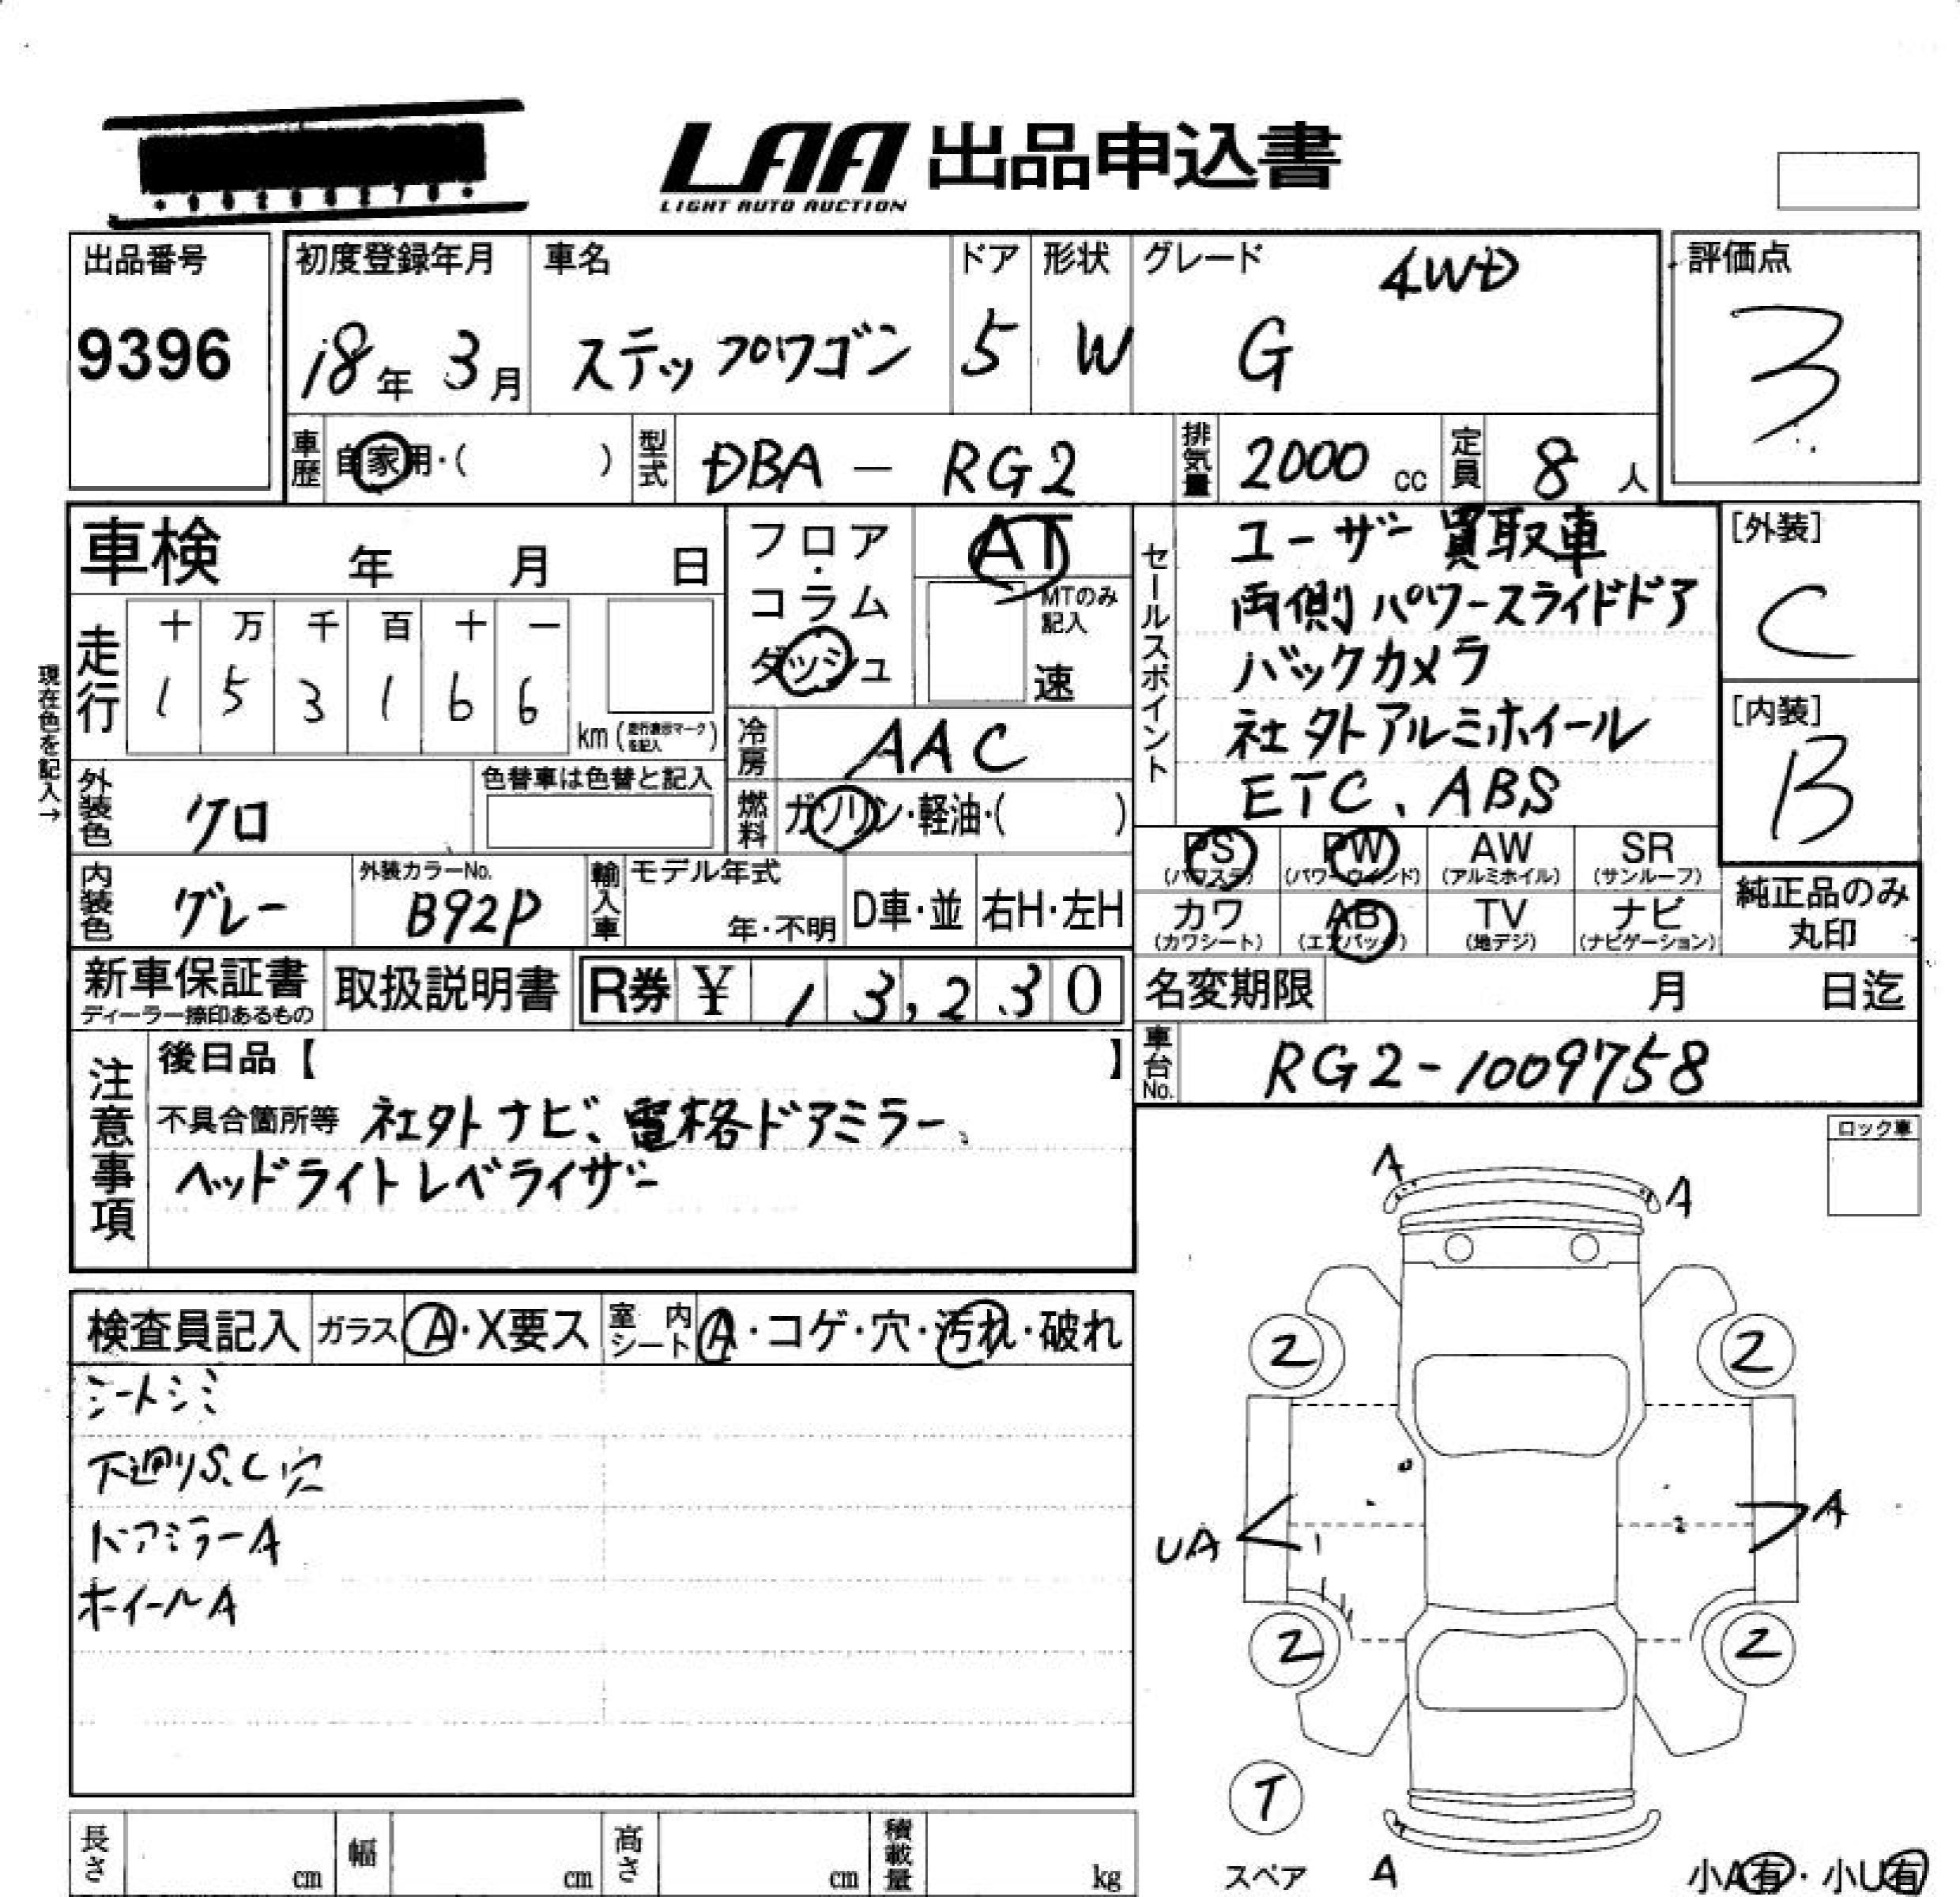 LAA 出品申込書
LIGHT AUTO AUCTION
出品番号
9396
初度登録年月
18年 3月
車名
ステップワゴン
ドア
5
形状
W
グレード
4WD
G
評価点
3
車歴
自家用・( )
型式
DBA - RG2
排気量
2000 cc
定員
8 人
車検 年 月 日
フロア・コラム
ダッシュ
AT
MTのみ記入
速
現在色を記入→
走行
十 万 千 百 十 一
1 5 3 1 6 6
km (走行表示マークを記入)
冷房
AAC
燃料
ガソリン・軽油・( )
外装色
クロ
色替車は色替と記入
内装色
グレー
外装カラーNo.
B92P
輸入車
モデル年式
年・不明
D車・並
右H・左H
セールスポイント
ユーザー買取車
両側パワースライドドア
バックカメラ
社外アルミホイール
ETC、ABS
[外装]
C
[内装]
B
PS (パワステ)
PW (パワーウインド)
AW (アルミホイル)
SR (サンルーフ)
カワ (カワシート)
AB (エアバック)
TV (地デジ)
ナビ (ナビゲーション)
純正品のみ
丸印
新車保証書
ディーラー捺印あるもの
取扱説明書
R券 ¥ 13,230
名変期限 月 日迄
車台No.
RG2-1009758
注意事項
後日品【 】
不具合箇所等 社外ナビ、電格ドアミラー、
ヘッドライトレベライザー
ロック車
検査員記入
ガラス A・X要ス
室内シート A・コゲ・穴・汚れ・破れ
シートシミ
下廻りS、C穴
ドアミラーA
ホイールA
A
A
2
2
UA
A
2
2
T
スペア
A
小A有・小U有
長さ cm
幅 cm
高さ cm
積載量 kg